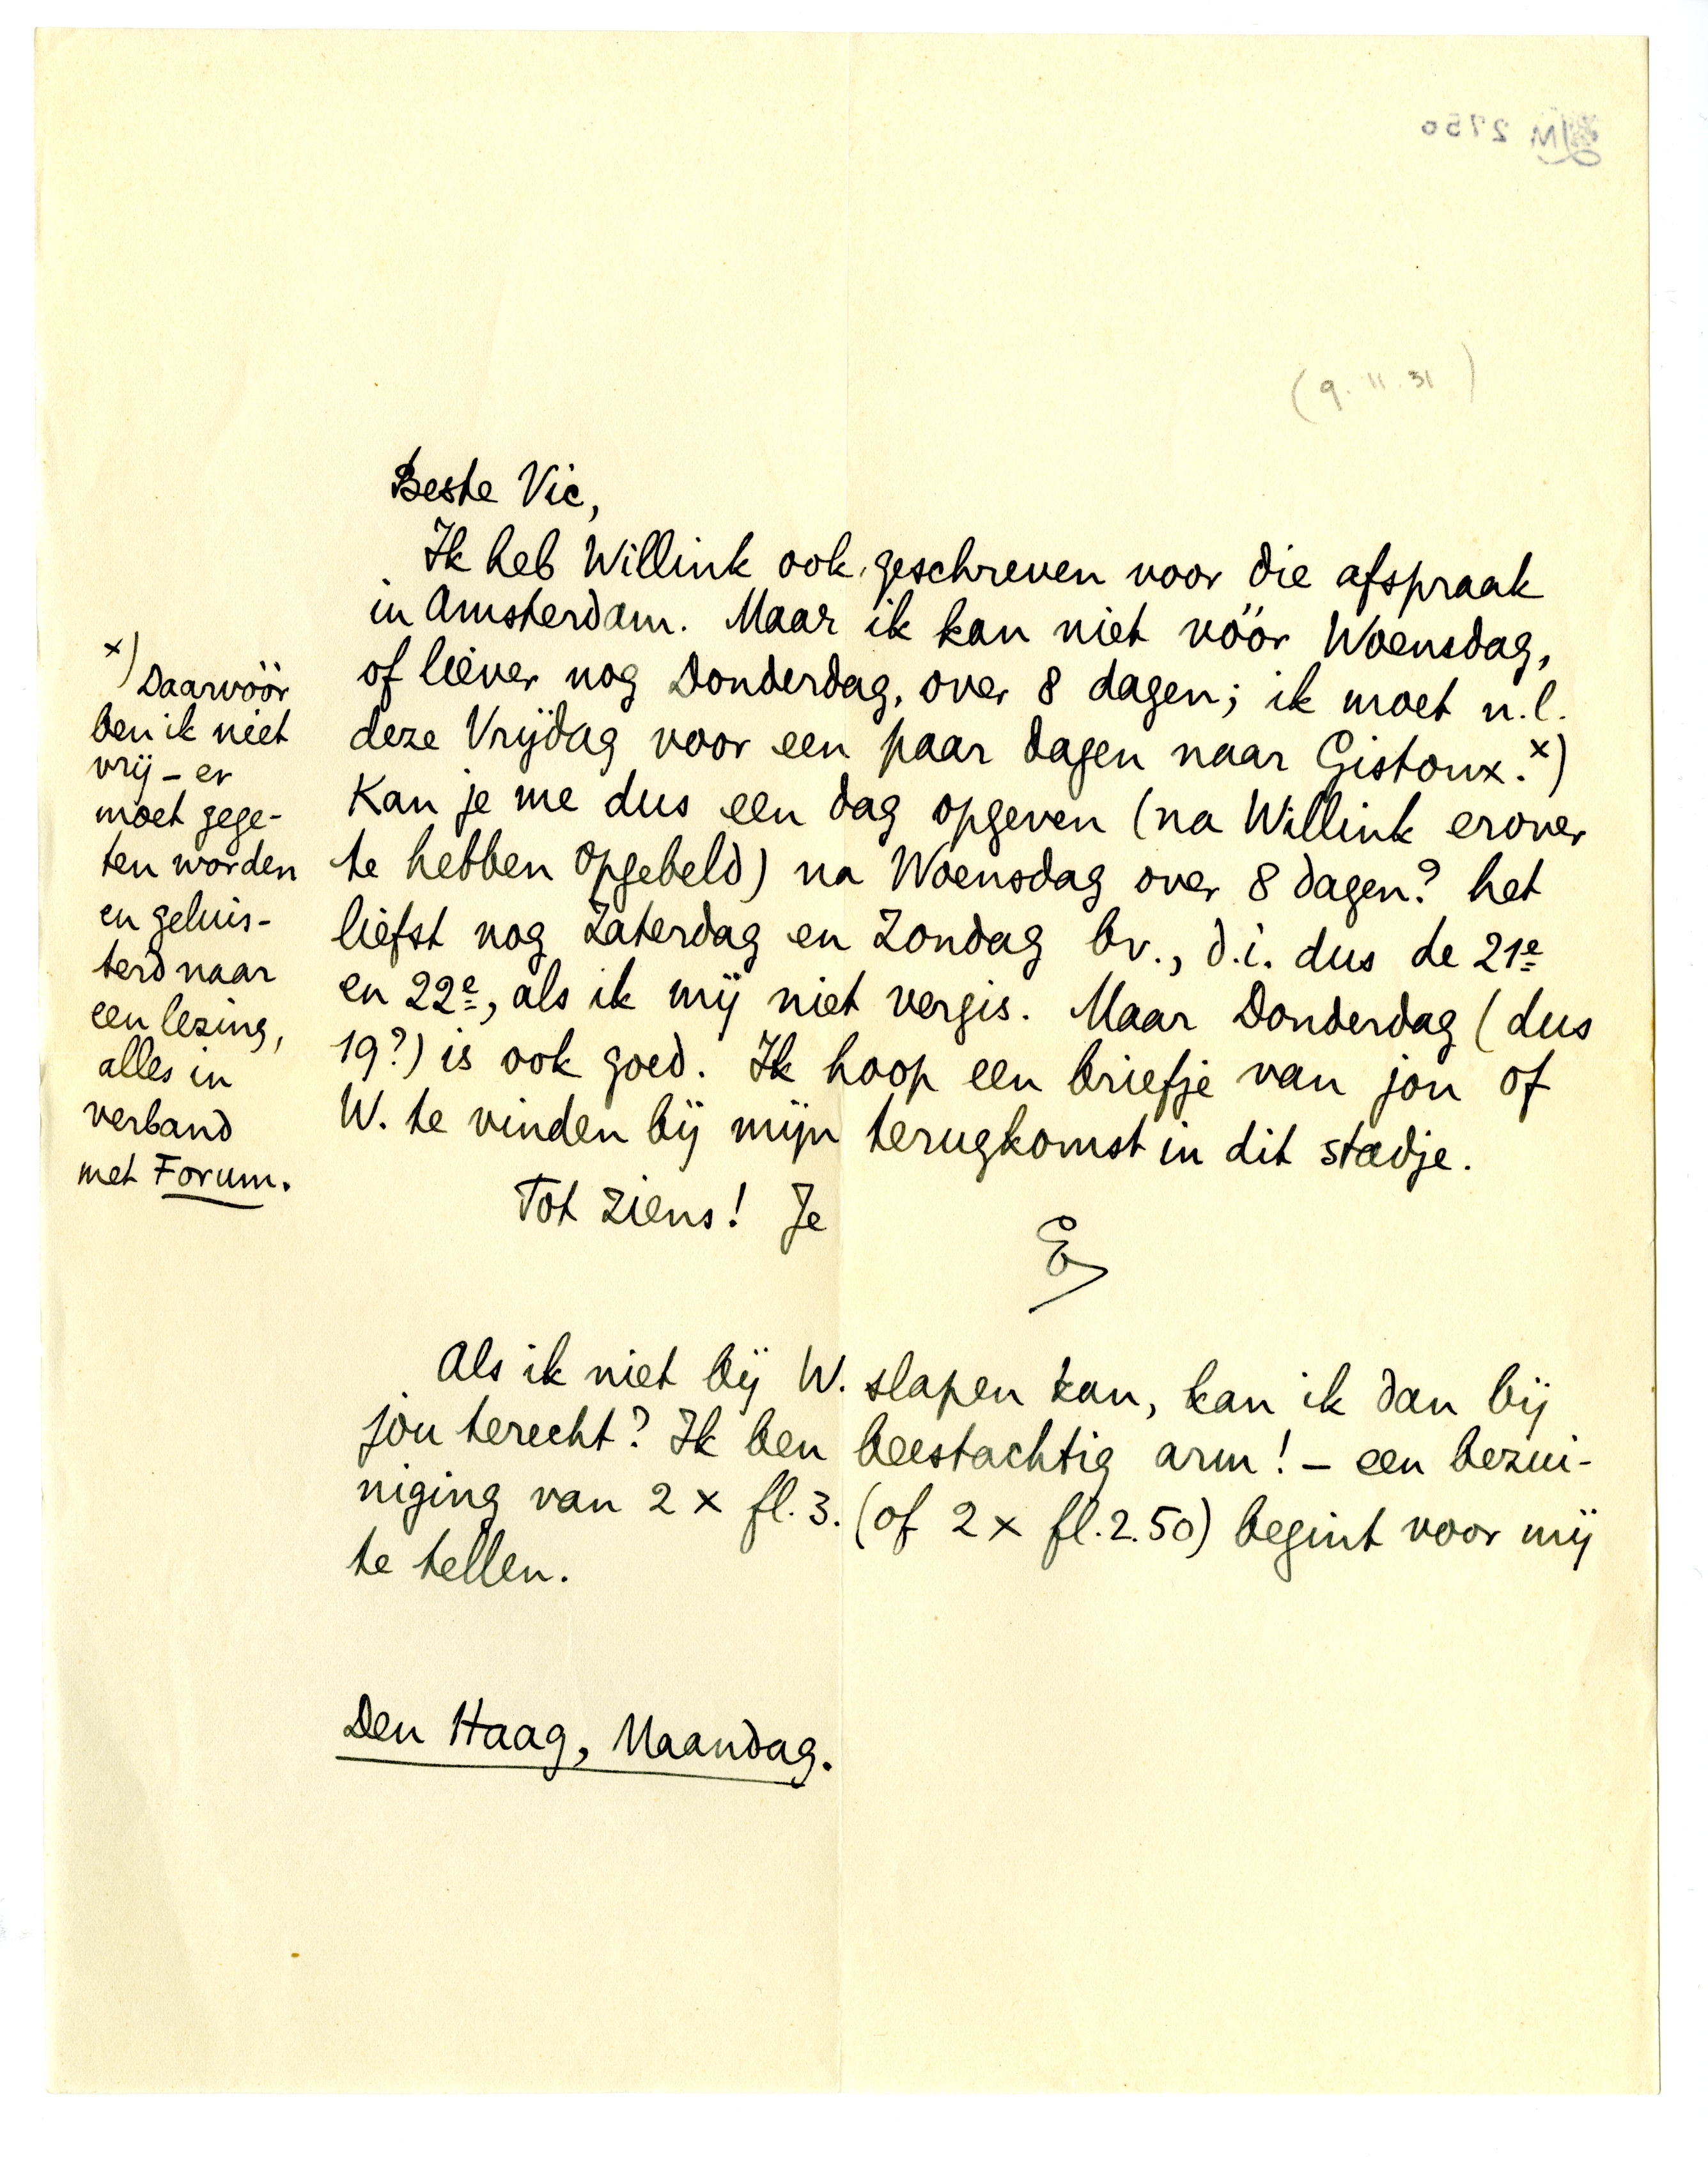 (9.11.31)
Beste Vic,
Ik heb Willink ook geschreven voor die afspraak
in Amsterdam. Maar ik kan niet vóór Woensdag,
of liever nog Donderdag, over 8 dagen; ik moet n.l.
deze Vrijdag voor een paar dagen naar Gistoux.x)
Kan je me dus een dag opgeven (na Willink erover
te hebben opgebeld) na Woensdag over 8 dagen? het
liefst nog Zaterdag en Zondag bv., d.i. dus de 21e
en 22e, als ik mij niet vergis. Maar Donderdag (dus
19?) is ook goed. Ik hoop een briefje van jou of
W. te vinden bij mijn terugkomst in dit stadje.
Tot ziens! Je
E
x) Daarvóór
ben ik niet
vrij – er
moet gege-
ten worden
en geluis-
terd naar
een lezing,
alles in
verband
met Forum.
Als ik niet bij W. slapen kan, kan ik dan bij
jou terecht? Ik ben beestachtig arm! – een bezui-
niging van 2 x fl. 3. (of 2 x fl. 2.50) begint voor mij
te tellen.
Den Haag, Maandag.